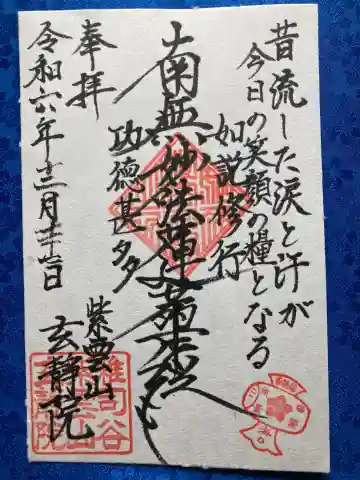 昔流した涙と汗が
今日の笑顔の糧となる
如説修行
南無妙法蓮華経
功徳甚多
奉拝
令和六年十二月
紫雲山
玄静院
雑司谷